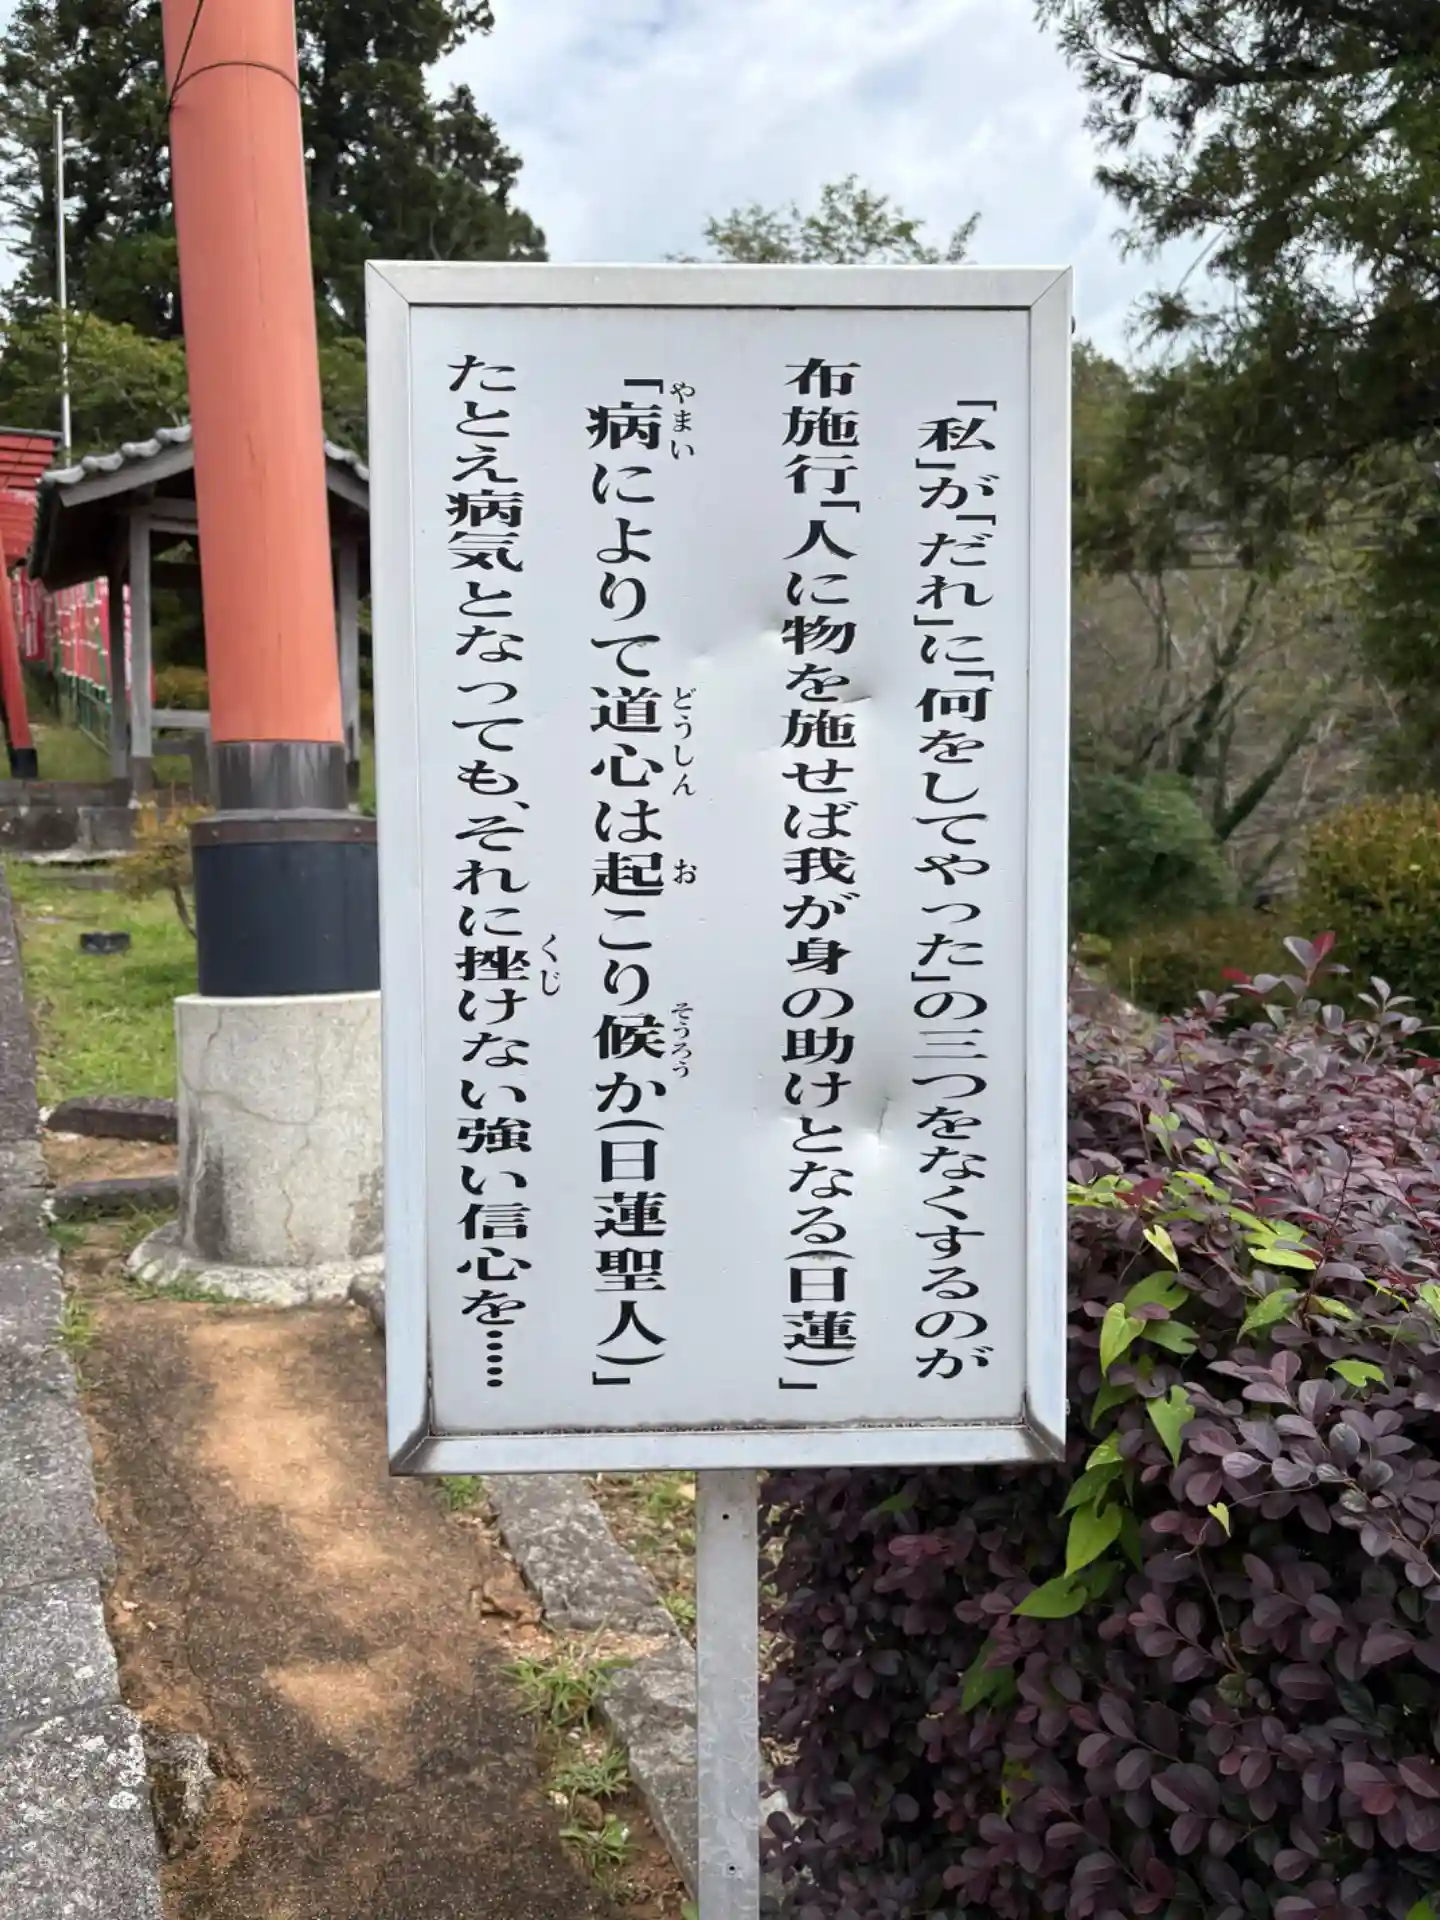 「私」が「だれ」に「何をしてやった」の三つをなくするのが
布施行「人に物を施せば我が身の助けとなる(日蓮)」
「病によりて道心は起こり候か(日蓮聖人)」
やまい どうしん お そうろう
たとえ病気となっても、それに挫けない強い信心を……
くじ